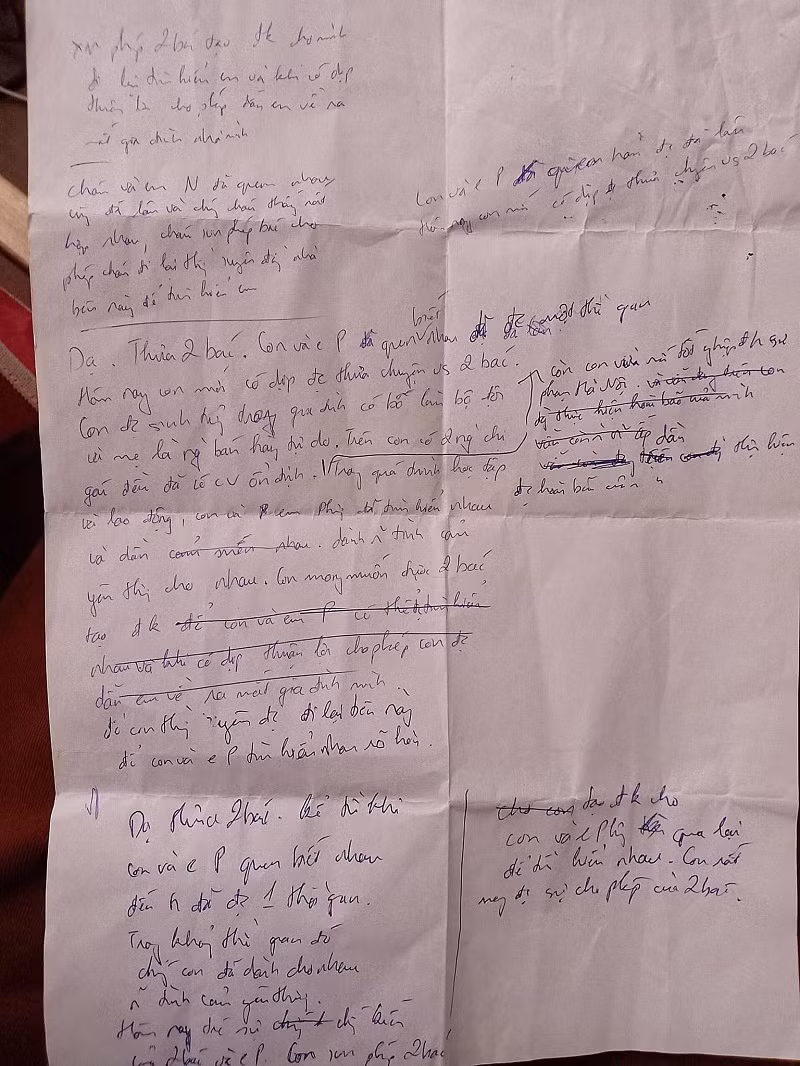 xin phép 2 bác tạo đk cho mình
đi lại tìm hiểu em và khi có dịp
thuận lợi cho phép dẫn em về ra
mắt gia đình nhà mình
cháu và em N đã quen nhau
cũng đã lâu và chúng cháu thấy rất
hợp nhau, cháu xin phép bác cho
phép cháu đi lại thg xuyên đến nhà
bên này để tìm hiểu em
Con và e P đã quen nhau đc đã lâu
Hôm nay con mới có dịp đc thưa chuyện vs 2 bác
Dạ. Thưa 2 bác. Con và e P đã quen biết nhau đã đc một thời gian
Hôm nay con mới có dịp đc thưa chuyện vs 2 bác.
Con đc sinh ra trong gia đình có bố làm bộ đội
và mẹ là ng bán hàng tự do. Trên con có 2 ng chị
gái đều đã có cv ổn định. Trong quá trình học tập
và lao động, con và em Phg đã tìm hiểu nhau
và dần cảm mến nhau. dành n tình cảm
yêu thg cho nhau. Con mong muốn được 2 bác
tạo đk để con và em P có thể tìm hiểu
nhau và khi có dịp thuận lợi cho phép con đc
dẫn em về ra mắt gia đình mình.
để con thg xuyên đc đi lại bên này
để con và e P tìm hiểu nhau rõ hơn.
Còn con vừa mới tốt nghiệp đh sư
phạm Hà Nội. và vẫn đang trên con
đg thực hiện hoài bão của mình
vẫn còn
thực hiện
đc hoài bão của
Dạ thưa 2 bác. kể từ khi
con và e P quen biết nhau
đến h đã đc 1 thời gian.
Trong khoảng thời gian đó
chúng con đã dành cho nhau
n tình cảm yêu thg.
Hôm nay
2 bác và e P. Con xin phép 2 bác
cho con tạo đk cho
con và e Phg qua lại
để tìm hiểu nhau. Con rất
mong đc sự cho phép của 2 bác.